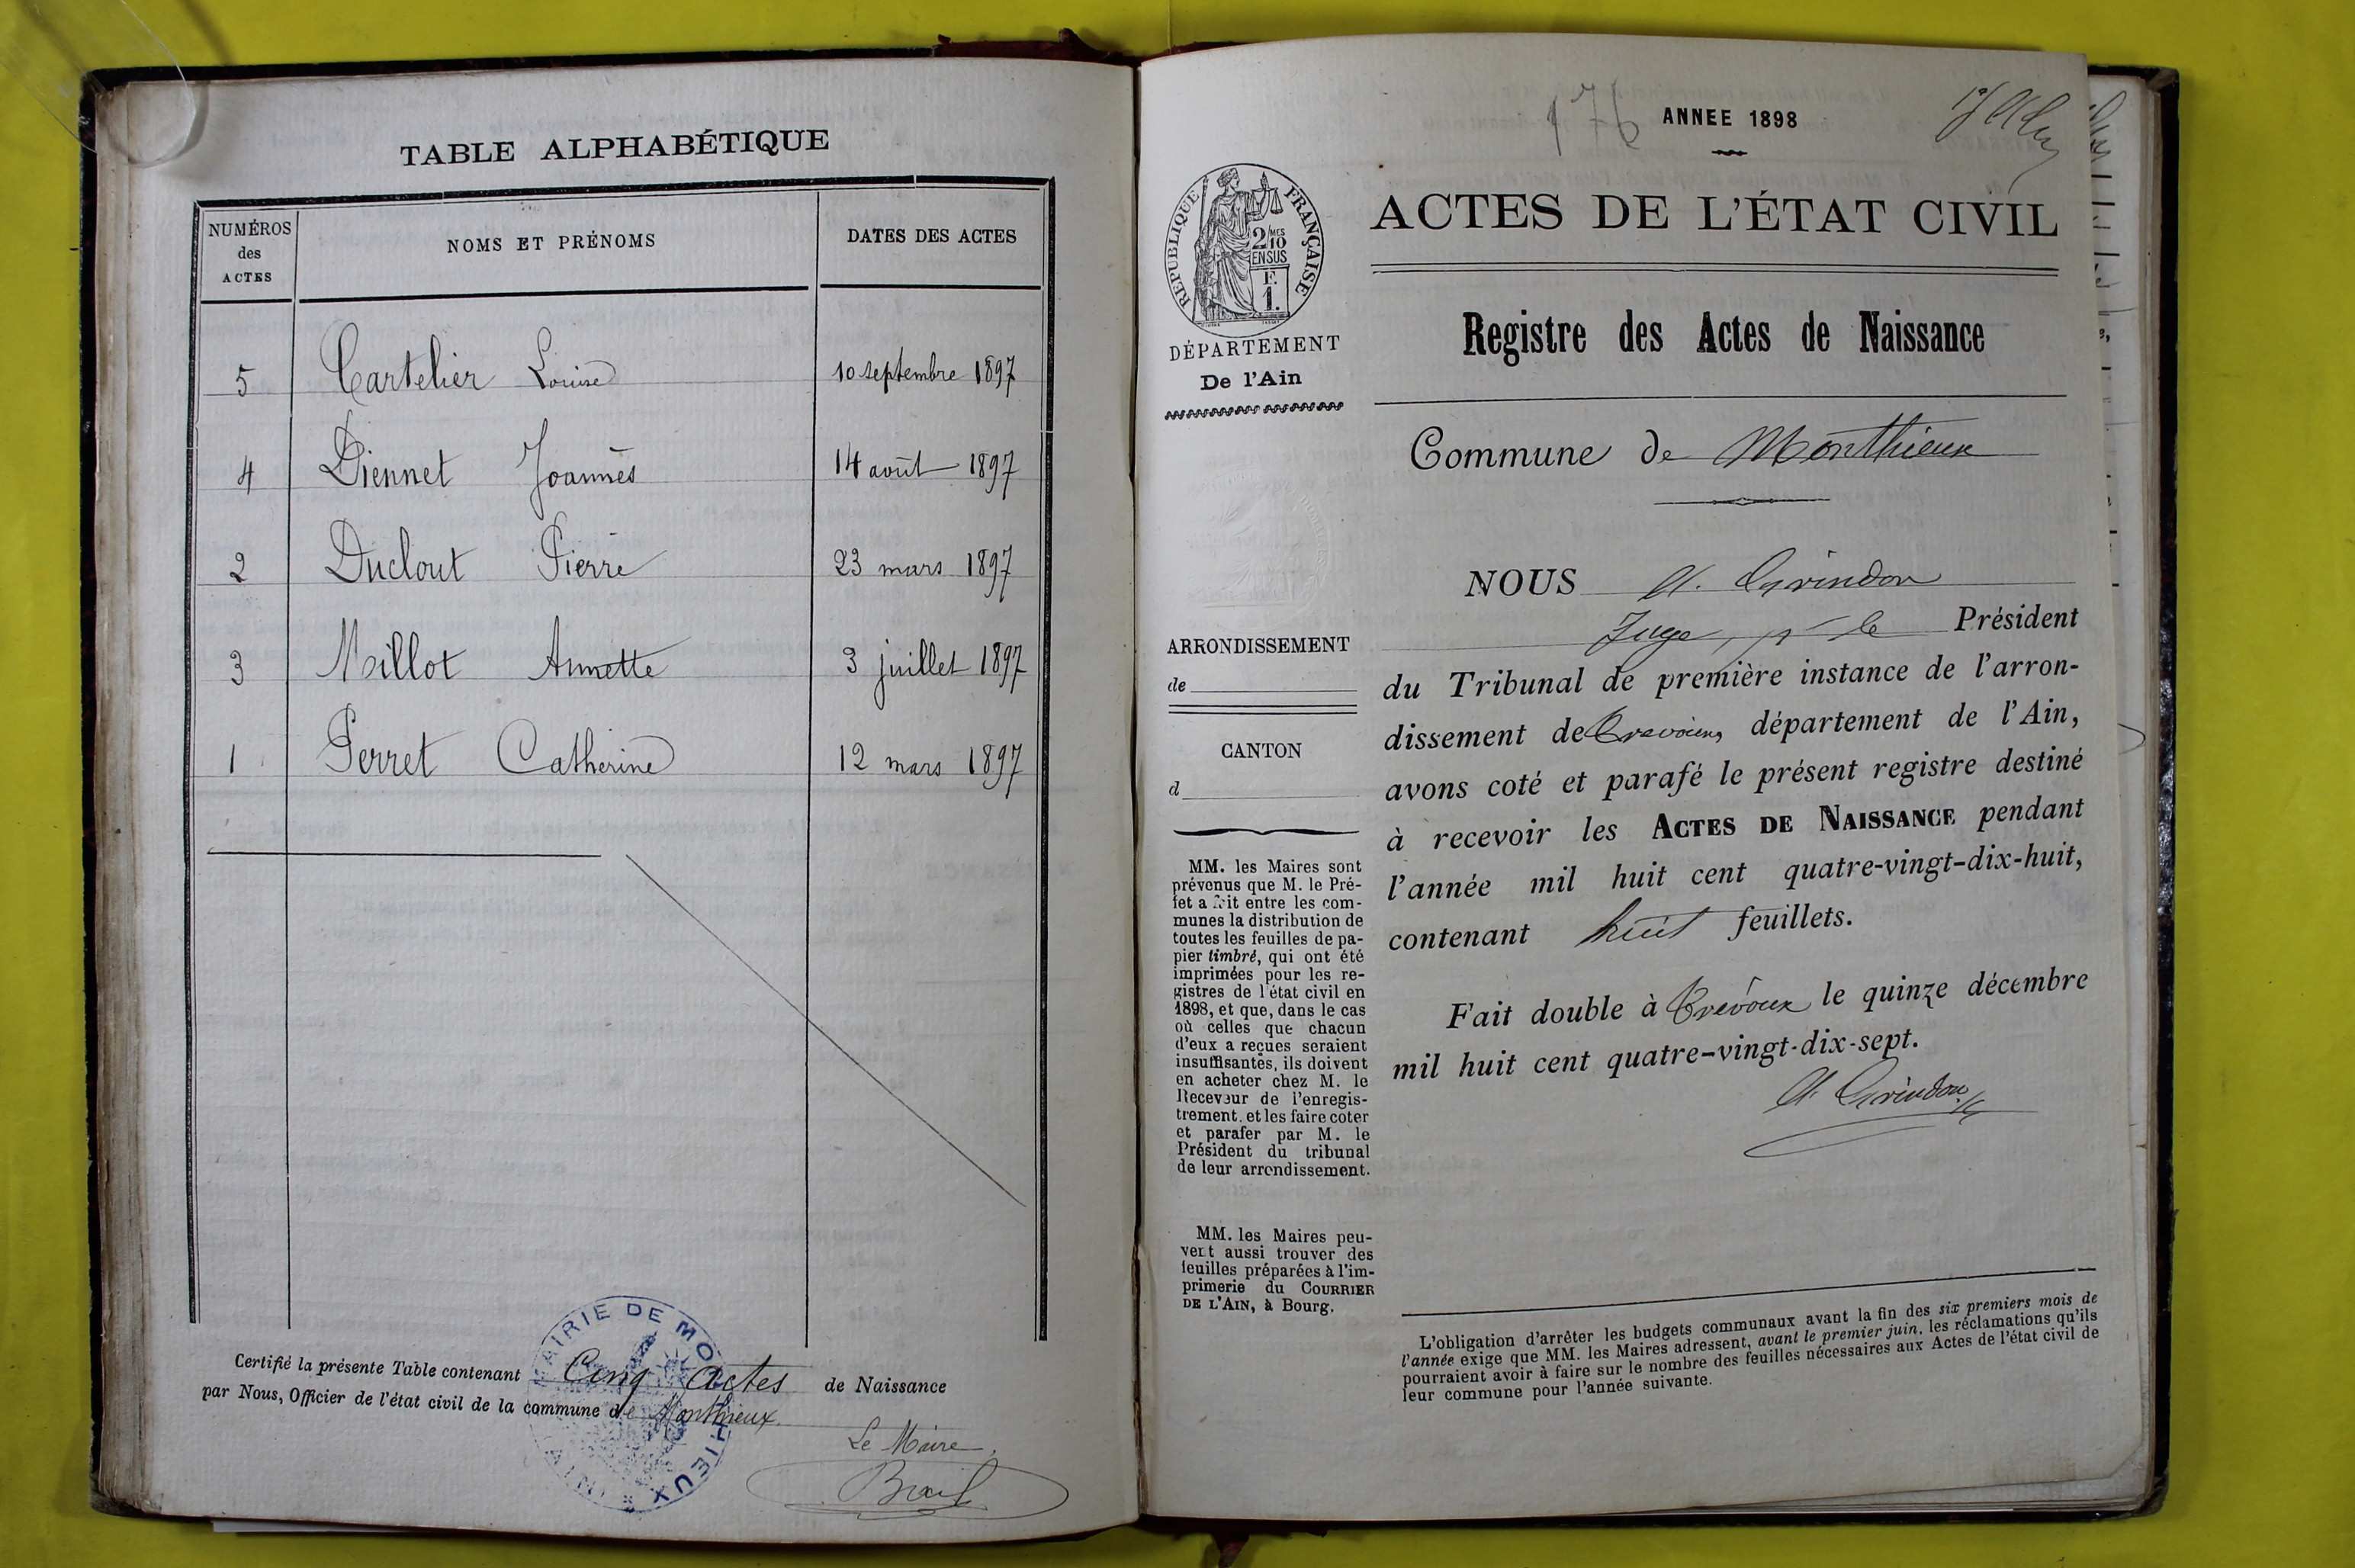 TABLE ALPHABÉTIQUE
NUMÉROS
des
ACTES
NOMS ET PRÉNOMS
DATES DES ACTES
5 Cartelier Louise 10 septembre 1897
4 Diennet Joannès 14 août 1897
2 Duclout Pierre 23 mars 1897
3 Millot Annette 3 juillet 1897
1 Perret Catherine 12 mars 1897
Certifié la présente Table contenant Cinq Actes de Naissance
par Nous, Officier de l'état civil de la commune de Monthieux
MAIRIE DE MONTHIEUX
AIN
Le Maire,
176
ANNEE 1898
ACTES DE L'ÉTAT CIVIL
REPUBLIQUE FRANÇAISE
2 MES
10
EN SUS
F.
1.
DÉPARTEMENT
De l'Ain
Registre des Actes de Naissance
Commune de Monthieux
ARRONDISSEMENT
de
CANTON
d
MM. les Maires sont
prévenus que M. le Pré-
fet a fait entre les com-
munes la distribution de
toutes les feuilles de pa-
pier timbré, qui ont été
imprimées pour les re-
gistres de l'état civil en
1898, et que, dans le cas
où celles que chacun
d'eux a reçues seraient
insuffisantes, ils doivent
en acheter chez M. le
Receveur de l'enregis-
trement, et les faire coter
et parafer par M. le
Président du tribunal
de leur arrondissement.
MM. les Maires peu-
vent aussi trouver des
feuilles préparées à l'im-
primerie du COURRIER
DE L'AIN, à Bourg.
NOUS A. Grindon
Juge, pr le Président
du Tribunal de première instance de l'arron-
dissement de Trévoux, département de l'Ain,
avons coté et parafé le présent registre destiné
à recevoir les ACTES DE NAISSANCE pendant
l'année mil huit cent quatre-vingt-dix-huit,
contenant huit feuillets.
Fait double à Trévoux le quinze décembre
mil huit cent quatre-vingt-dix-sept.
A. Grindon
L'obligation d'arrêter les budgets communaux avant la fin des six premiers mois de
l'année exige que MM. les Maires adressent, avant le premier juin, les réclamations qu'ils
pourraient avoir à faire sur le nombre des feuilles nécessaires aux Actes de l'état civil de
leur commune pour l'année suivante.